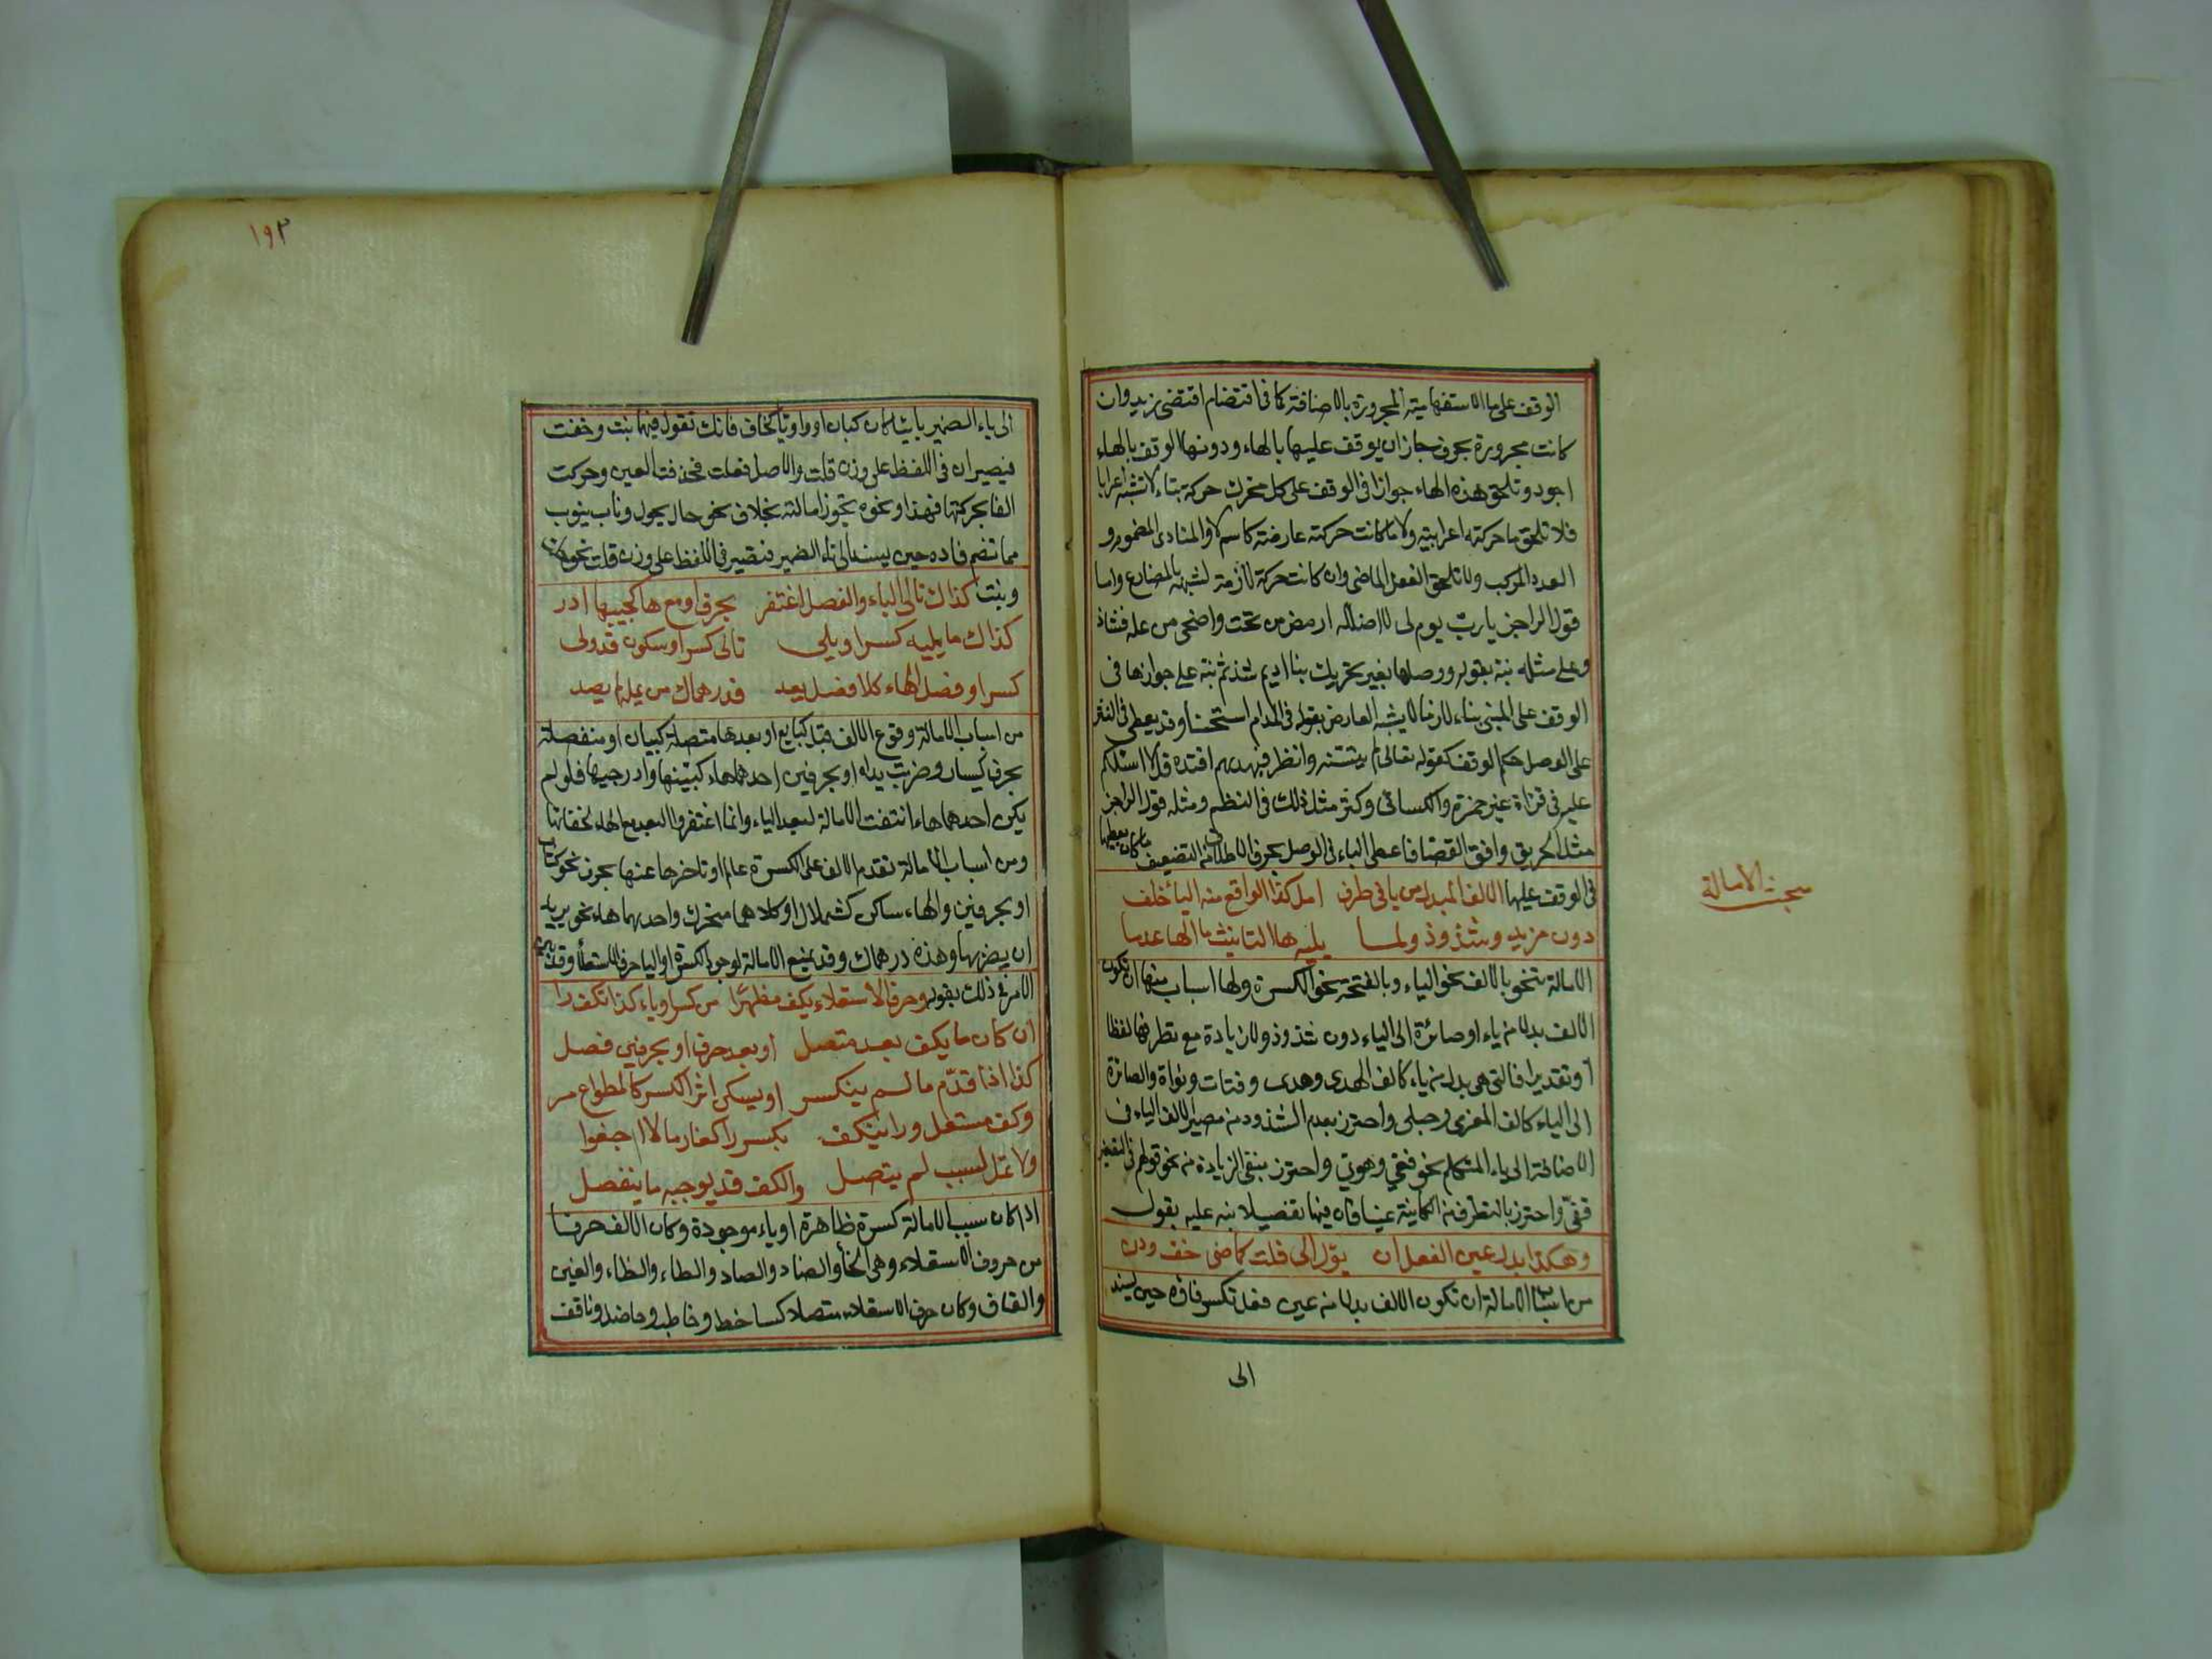 الوقف على ما الاستفهامية المجرورة بالاضافة كما في اقتضام اقتضى زيد وان
كانت مجرورة بحرف جاز ان يوقف عليها بالهاء ودونها الوقف بالهاء
اجود وتلحق هذه الهاء جوازا في الوقف على كل متحرك حركة بناء لا تشبه اعرابا
فلا تلحق ما حركته اعرابية ولا ما كانت حركته عارضة كاسم لا والمنادى المضموم و
العدد المركب ولا تلحق الفعل الماضي وان كانت حركة لازمة لشبهه بالمضارع واما
قول الراجز يا رب يوم لي لا اضلله ارمض من تحت واضحى من عله فشاذ
وعلى مثله نبه بقوله ووصلها بغير تحريك بنا اديم شذ ثم نبه على جوازها في
الوقف على المبني بناء لازما لا يشبه العارض بقوله في المدام استحسنا وقد يعطى في النثر
على الوصل حكم الوقف كقوله تعالى لم يتسنه وانظر فبهديهم اقتده قل لا اسئلكم
عليه في قراة غير حمزة والكسائي وكثر مثل ذلك في النظم ومثله قول الراجز
مثل الحريق وافق القصبا فاعطى الباء في الوصل بحرف الاطلاق من التضعيف ما كان يعطيها
في الوقف عليها الالف المبدل من يا في طرف امل كذا الواقع منه اليا خلف
دون مزيد وشذوذ ولما يليه ها التانيث ما الها عدما
الامالة تنحو بالالف نحو الياء وبالفتحة نحو الكسرة ولها اسباب منها ان تكون
الالف بدلا من ياء او صائرة الى الياء دون شذوذ ولا زيادة مع تطرفها لفظا
او تقديرا فالتي هي بدل من ياء كالف الهدى وهدى وفتات ونواة والصائرة
الى الياء كالف المغزى وحبلى واحترز بعدم الشذوذ من مصير الالف الياء في
الاضافة الى ياء المتكلم نحو قفي وهوي واحترز بنفي الزيادة من نحو قولهم في التصغير
قفي واحترز بالتطرف من الكاينة عينا فان فيها تفصيلا نبه عليه بقوله
وهكذا بدل عين الفعل ان يؤل الى فلت كماضي خف ودن
من اسباب الامالة ان تكون الالف بدلا من عين فعل تكسر فاؤه حين يسند
الى
مبحث الامالة
١٩٣
الى ياء الضمير يائيا كان كبان او واويا كخاف فانك تقول فيهما بنت وخفت
فيصيران في اللفظ على وزن فلت والاصل فعلت فحذفت العين وحركت
الفا بحركتها فهذا ونحوه تجوز امالته بخلاف نحو حال يحول وناب ينوب
مما تضم فاده حين يسند الى تاء الضمير فتصير في اللفظ على وزن فلت نحو
وبنت كذاك تالي الياء والفصل اغتفر بحرف او مع ها كجيبها ادر
كذاك ما يليه كسر او يلي تالي كسر او سكون قد ولي
كسرا وفصل الهاء كلا فصل يعد فدرهماك من يمله لم يصد
من اسباب الامالة وقوع الالف قبل كبايع او بعدها متصلة كبيان او منفصلة
بحرف كيسار وضربت يداه او بحرفين احدهما هاء كبيتها وادر جيبها فلو لم
يكن احدهما هاء انتفت الامالة لبعد الياء وانما اغتفر البعد مع الهاء لخفائها
ومن اسباب الامالة تقدم الالف على الكسرة عالم او تاخرها عنها بحرف نحو كتاب
او بحرفين والهاء ساكن كشملال او كلاهما متحرك واحدهما هاء نحو يريد
ان يضربها وهذه درهماك وقد يمنع الامالة لوجود الكسرة او الياء حرف الاستعلا وقد
الامر في ذلك بقوله وحرف الاستعلاء يكف مظهرا من كسر او ياء وكذا تكف را
ان كان ما يكف بعد متصل او بعد حرف او بحرفين فصل
كذا اذا قدم ما لم ينكسر او يسكن اثر الكسر كالمطواع مر
وكف مستعل ورا ينكف بكسر را كغارما لا اجفوا
ولا تمل لسبب لم يتصل والكف قد يوجبه ما ينفصل
اذا كان سبب الامالة كسرة ظاهرة او ياء موجودة وكان الالف حرف
من حروف الاستعلاء وهي الخا والضاد والصاد والطاء والظاء والغين
والقاف وكان حرف الاستعلاء متصلا كساخط وخاطب وحاضل وناقف